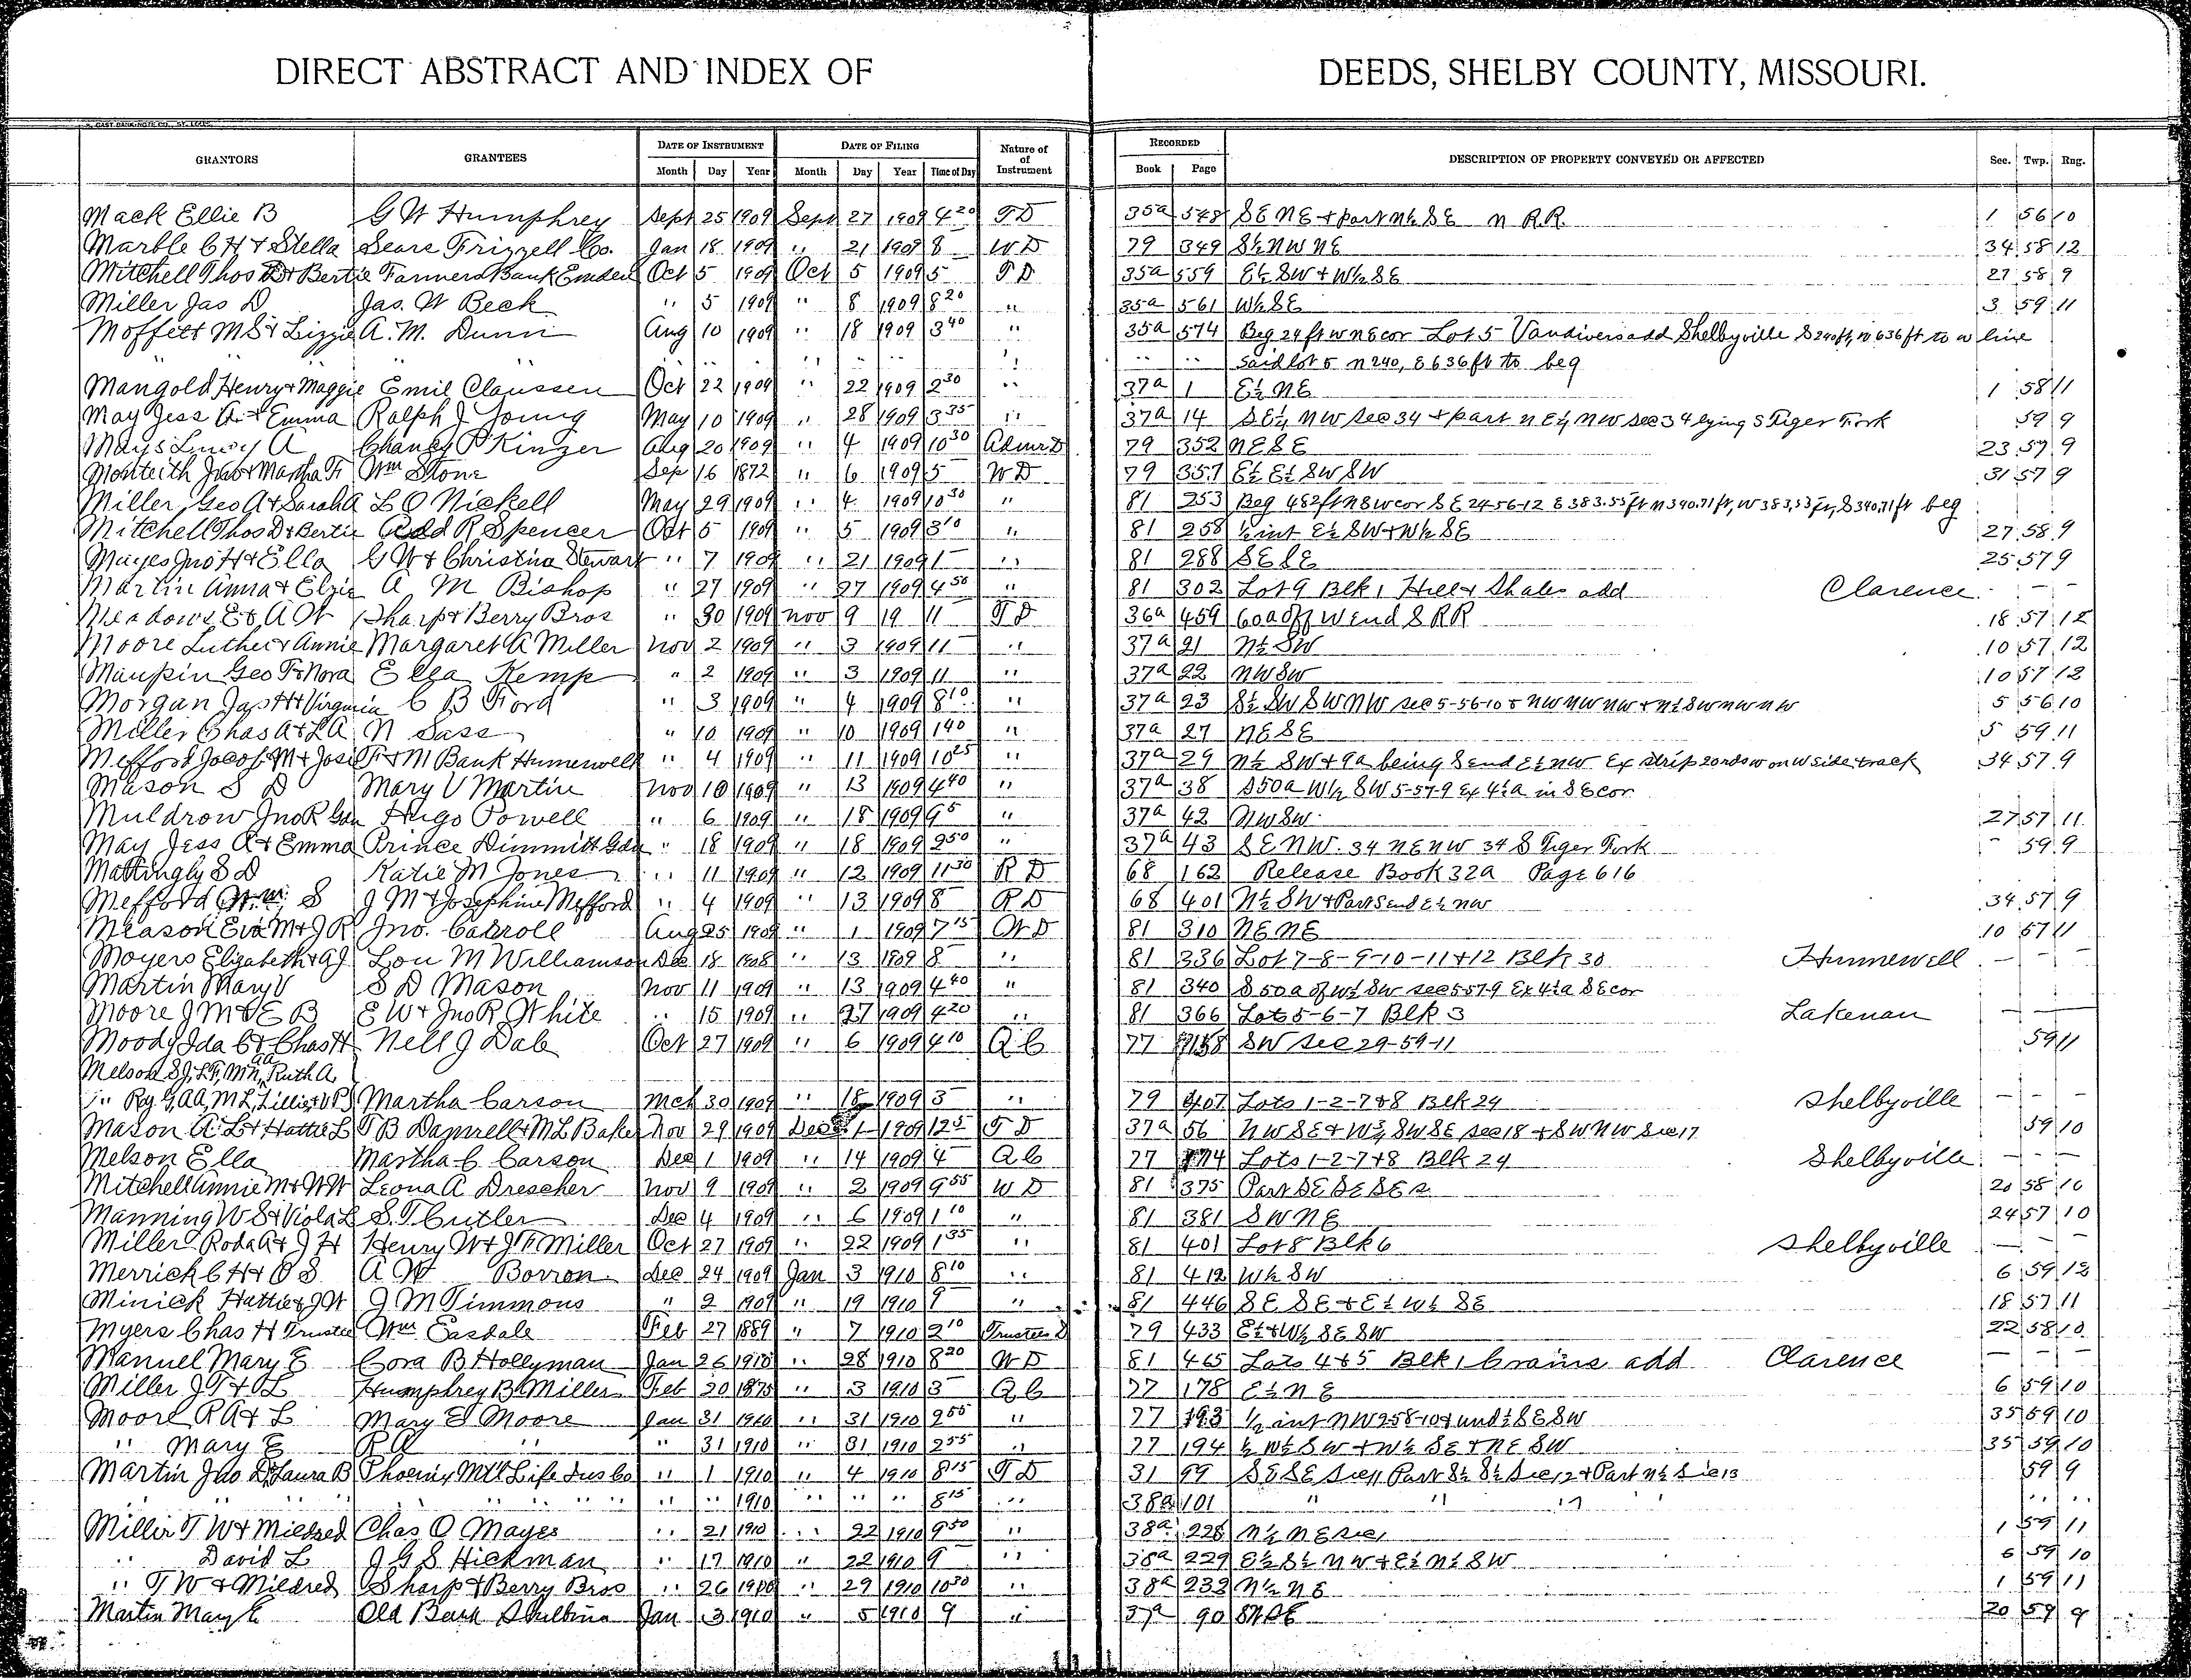 DIRECT ABSTRACT AND INDEX OF DEEDS, SHELBY COUNTY, MISSOURI.
GRANTORS GRANTEES DATE OF INSTRUMENT DATE OF FILING Nature of of Instrument RECORDED DESCRIPTION OF PROPERTY CONVEYED OR AFFECTED Sec. Twp. Rng.
Month Day Year Month Day Year Time of Day Book Page
Mack Ellie B G W Humphrey Sept 25 1909 Sept 27 1909 4 20 T D 35a 548 SE NE + part N½ SE N RR 1 56 10
Marble C H + Stella Sears Frizzell Co. Jan 18 1909 " 21 1909 8 W D 79 349 S½ NW NE 34 58 12
Mitchell Thos D + Bertie Farmers Bank Emden Oct 5 1909 Oct 5 1909 5 T D 35a 559 E½ SW + W½ SE 27 58 9
Miller Jas D Jas. W Beck " 5 1909 " 8 1909 8 20 " 35a 561 W½ SE 3 59 11
Moffett M S + Lizzie A. M. Dunn Aug 10 1909 " 18 1909 3 40 " 35a 574 Beg 24 ft W NE cor Lot 5 Vandivers add Shelbyville S 240 ft, W 636 ft to W line
" " " " " " " " " said lot 5 N 240, E 636 ft to beg
Mangold Henry + Maggie Emil Claussen Oct 22 1909 " 22 1909 2 30 " 37a 1 E½ NE 1 58 11
May Jess A + Emma Ralph J Young May 10 1909 " 28 1909 3 35 " 37a 14 SE¼ NW Sec 34 + part N E¼ NW Sec 34 lying S Tiger Fork 59 9
Mays Lucy A Chancy P Kinzer Aug 20 1909 " 4 1909 10 30 Admr D 79 352 NE SE 23 57 9
Monteith Jno + Martha F Wm Stone Sep 16 1872 " 6 1909 5 W D 79 357 E½ E½ SW SW 31 57 9
Miller Geo A + Sarah A L O Nickell May 29 1909 " 4 1909 10 30 " 81 253 Beg 482 ft N SW cor SE 24-56-12 E 383.55 ft N 340.71 ft, W 383.53 ft, S 340.71 ft beg
Mitchell Thos D + Bertie Add R Spencer Oct 5 1909 " 5 1909 3 10 " 81 258 ½ int E½ SW + W½ SE 27 58 9
Mayes Jno H + Ella G W + Christina Stewart " 7 1909 " 21 1909 1 " 81 288 SE SE 25 57 9
Martin Anna + Elzie A M Bishop " 27 1909 " 27 1909 4 50 " 81 302 Lot 9 Blk 1 Hill + Shales add Clarence - -
Meadows E + A W Sharp + Berry Bros " 30 1909 Nov 9 19 11 T D 36a 459 60a off W end S RR 18 57 12
Moore Luther + Annie Margaret A Miller Nov 2 1909 " 3 1909 11 " 37a 21 N½ SW 10 57 12
Maupin Geo F + Nora Ella Kemp " 2 1909 " 3 1909 11 " 37a 22 NW SW 10 57 12
Morgan Jas H + Virginia C B Ford " 3 1909 " 4 1909 8 10 " 37a 23 S½ SW SW NW sec 5-56-10 + NW NW NW + N½ SW NW NW 5 56 10
Miller Chas A + L A N Sass " 10 1909 " 10 1909 1 40 " 37a 27 NE SE 5 59 11
Mefford Jacob M + Josie F + M Bank Hunnewell " 4 1909 " 11 1909 10 25 " 37a 29 N½ SW + 9a being S end E½ NW Ex strip 20 rds W on W side track 34 57 9
Mason S D Mary V Martin Nov 10 1909 " 13 1909 4 40 " 37a 38 S 50a W½ SW 5-57-9 Ex 4½a in SE cor
Muldrow Jno R Gdn Hugo Powell " 6 1909 " 18 1909 9 5 " 37a 42 NW SW 27 57 11
May Jess A + Emma Prince Dimmitt Gdn " 18 1909 " 18 1909 2 50 " 37a 43 SE NW 34 NE NW 34 S Tiger Fork - 59 9
Mattingly S D Katie M Jones " 11 1909 " 12 1909 11 30 R D 68 162 Release Book 32a Page 616
Mefford Wm. S J M + Josephine Mefford " 4 1909 " 13 1909 8 R D 68 401 N½ SW + Part S end E½ NW 34 57 9
Meason Eva M + J R Jno. Carroll Aug 25 1909 " 1 1909 7 15 W D 81 310 NE NE 10 57 11
Moyers Elizabeth + A J Lou M Williamson Dec 18 1908 " 13 1909 8 " 81 336 Lot 7-8-9-10-11+12 Blk 30 Hunnewell - - -
Martin Mary V S D Mason Nov 11 1909 " 13 1909 4 40 " 81 340 S 50a of W½ SW sec 5-57-9 Ex 4½a SE cor
Moore J M + E B E W + Jno R White " 15 1909 " 27 1909 4 20 " 81 366 Lots 5-6-7 Blk 3 Lakenan - -
Moody Ida C + Chas H Nell J Dale Oct 27 1909 " 6 1909 4 10 Q C 77 158 SW sec 29-59-11 59 11
Melson S J, L F, M N, Ruth A,
" Roy G, A A, M L, Lillie + V P Martha Carson Mch 30 1909 " 18 1909 3 " 79 407 Lots 1-2-7+8 Blk 24 Shelbyville - - -
Mason A L + Hattie L T B Damrell + M L Baker Nov 29 1909 Dec 1 1909 12 5 T D 37a 56 NW SE + W¾ SW SE sec 18 + SW NW Sec 17 59 10
Melson Ella Martha C Carson Dec 1 1909 " 14 1909 4 Q C 77 174 Lots 1-2-7+8 Blk 24 Shelbyville - - -
Mitchell Annie M + W W Leona A Drescher Nov 9 1909 " 2 1909 9 55 W D 81 375 Part SE SE SE 20 58 10
Manning W S + Viola L S. T Cutler Dec 4 1909 " 6 1909 1 10 " 81 381 SW NE 24 57 10
Miller Roda A + J H Henry W + J F Miller Oct 27 1909 " 22 1909 1 35 " 81 401 Lot 8 Blk 6 Shelbyville - - -
Merrick C H + O S A W Borron Dec 24 1909 Jan 3 1910 8 10 " 81 412 W½ SW 6 59 12
Minick Hattie + J W J M Timmons " 2 1909 " 19 1910 9 " 81 446 SE SE + E½ W½ SE 18 57 11
Myers Chas H Trustee Wm Easdale Feb 27 1889 " 7 1910 2 10 Trustees D 79 433 E½ + W½ SE SW 22 58 10
Manuel Mary E Cora B Hollyman Jan 26 1910 " 28 1910 8 20 W D 81 465 Lots 4+5 Blk 1 Crains add Clarence - - -
Miller J T + L Humphrey B Miller Feb 20 1875 " 3 1910 3 Q C 77 178 E½ NE 6 59 10
Moore R A + L Mary E Moore Jan 31 1910 " 31 1910 2 55 " 77 193 ½ int NW 2 58-10 + und ½ SE SW 35 59 10
" Mary E R A " " 31 1910 " 31 1910 2 55 " 77 194 ½ W½ SW + W½ SE + NE SW 35 59 10
Martin Jno D, Laura B Phoenix Mtl Life Ins Co " 1 1910 " 4 1910 8 15 T D 31 99 SE SE Sec 11 Part S½ S½ Sec 12 + Part N½ Sec 13 59 9
" " " " " " " " " 1910 " " " 8 15 " 38a 101 " " " " "
Miller T W + Mildred Chas O Mayes " 21 1910 " 22 1910 9 50 " 38a 228 N½ NE sec 1 1 59 11
" David L J G S Hickman " 17 1910 " 22 1910 9 " 38a 229 E½ S½ NW + E½ N½ SW 6 59 10
" T W + Mildred Sharp + Berry Bros " 26 1910 " 29 1910 10 30 " 38a 232 N½ NE 1 59 11
Martin Mary E Old Bank Shelbina Jan 3 1910 " 5 1910 9 " 37a 90 20 59 9